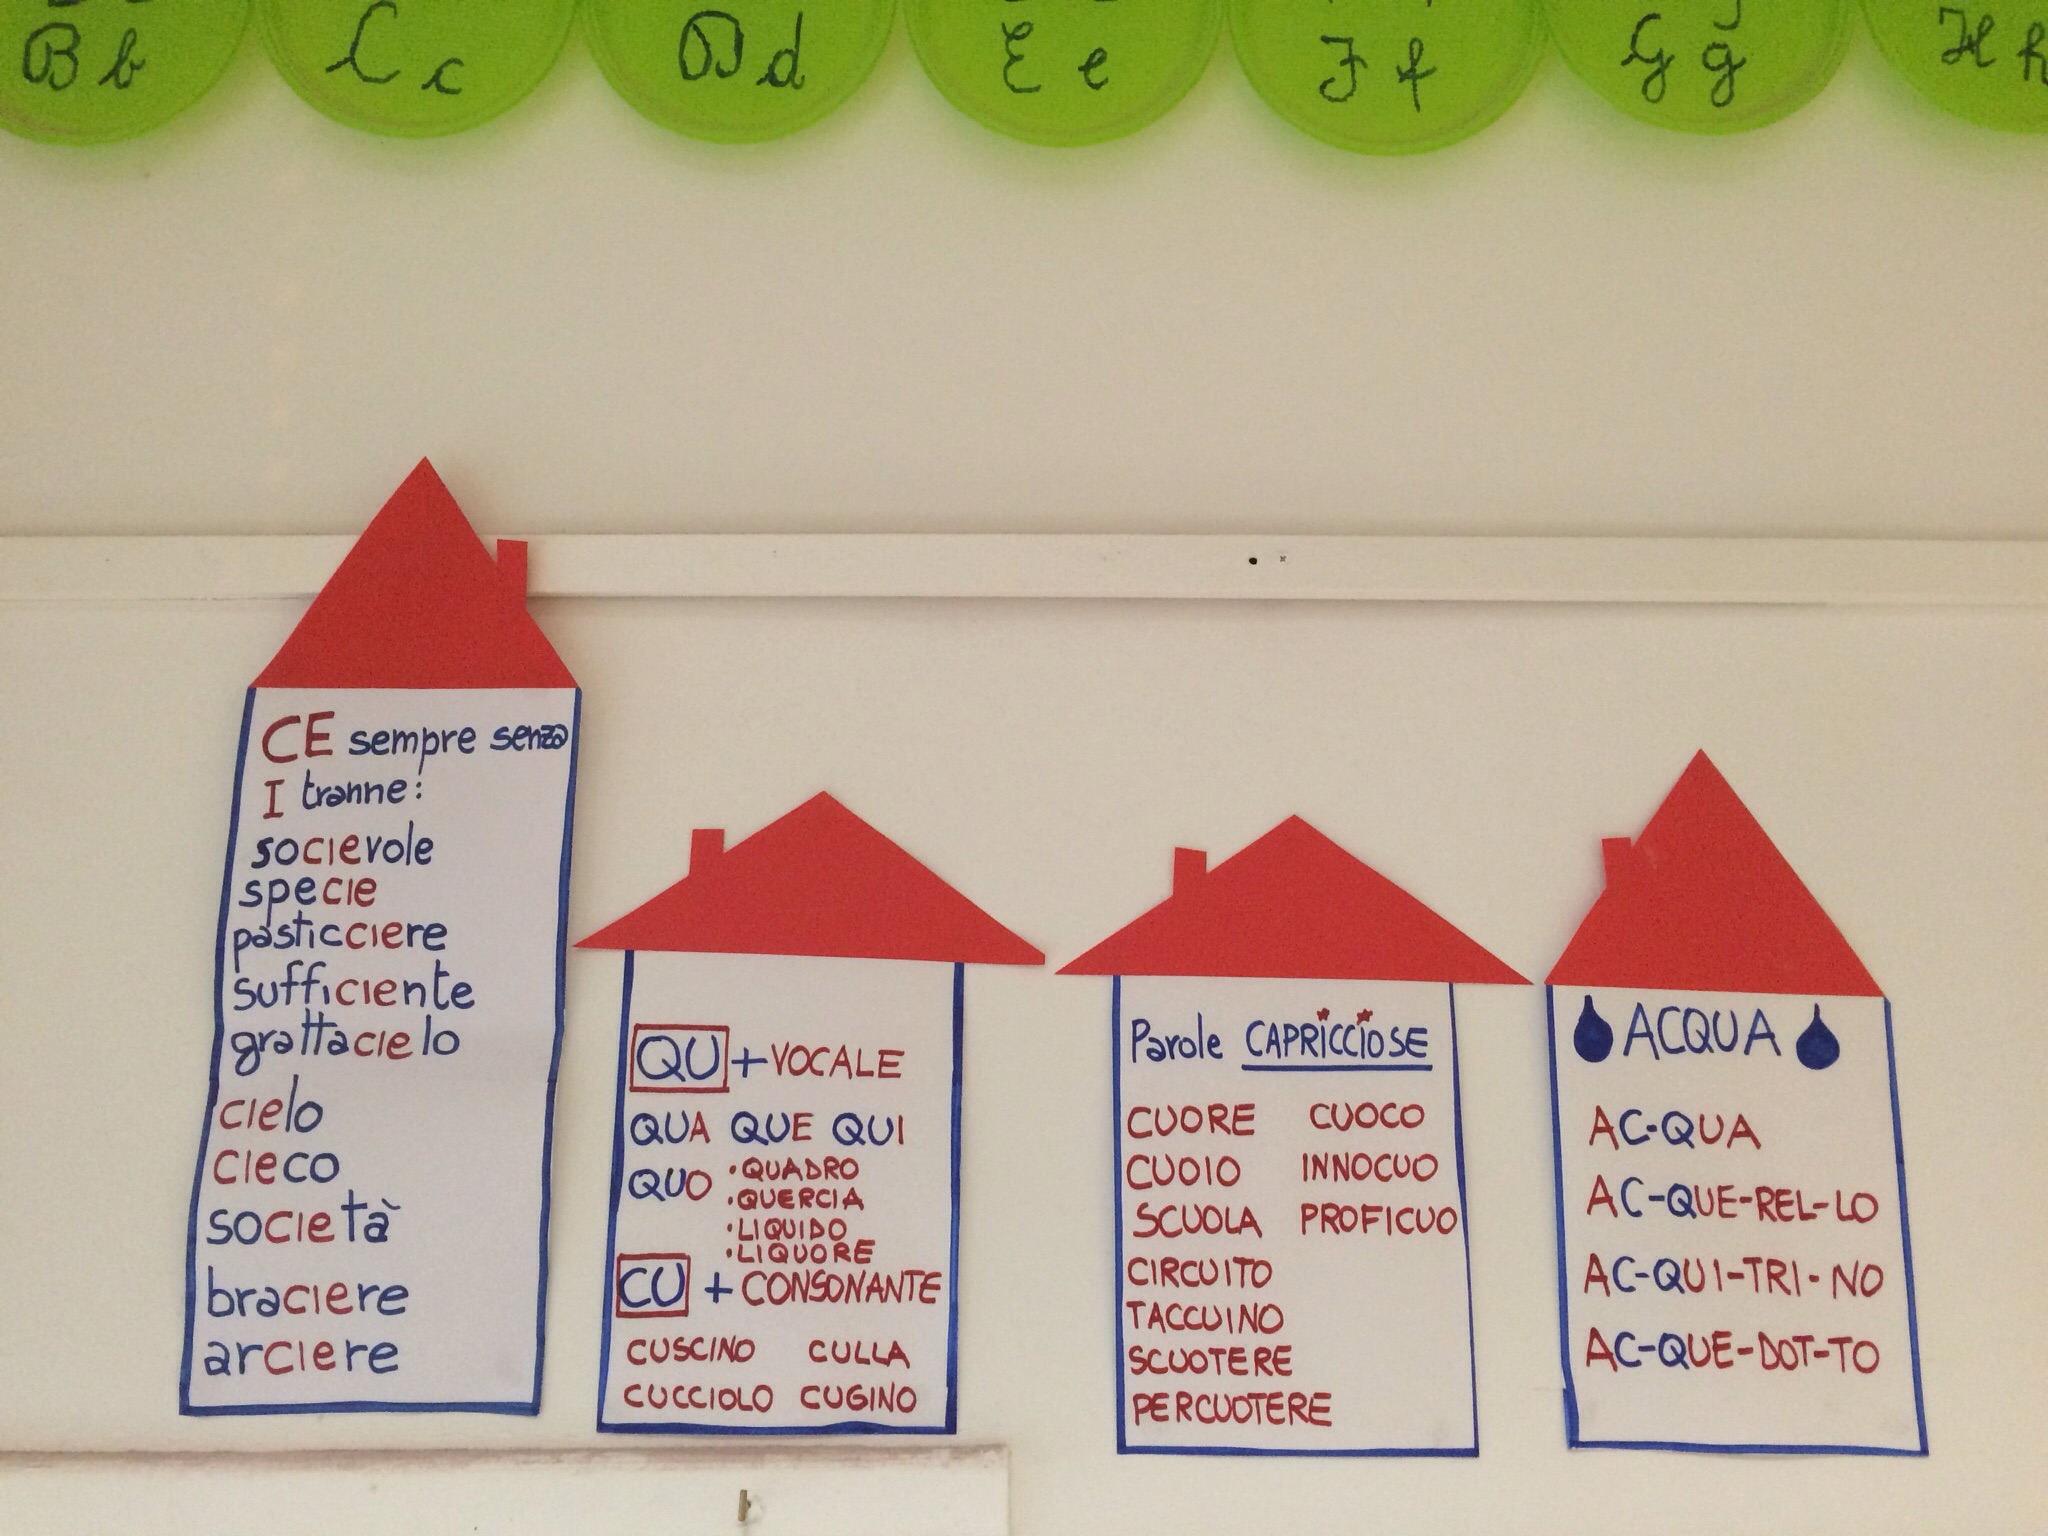 B b
C c
D d
E e
F f
G g
H h
CE sempre senza
I tranne:
socievole
specie
pasticciere
sufficiente
grattacielo
cielo
cieco
società
braciere
arciere
QU + VOCALE
QUA QUE QUI
QUO
• QUADRO
• QUERCIA
• LIQUIDO
• LIQUORE
CU + CONSONANTE
CUSCINO CULLA
CUCCIOLO CUGINO
Parole CAPRICCIOSE
CUORE CUOCO
CUOIO INNOCUO
SCUOLA PROFICUO
CIRCUITO
TACCUINO
SCUOTERE
PERCUOTERE
ACQUA
AC-QUA
AC-QUE-REL-LO
AC-QUI-TRI-NO
AC-QUE-DOT-TO